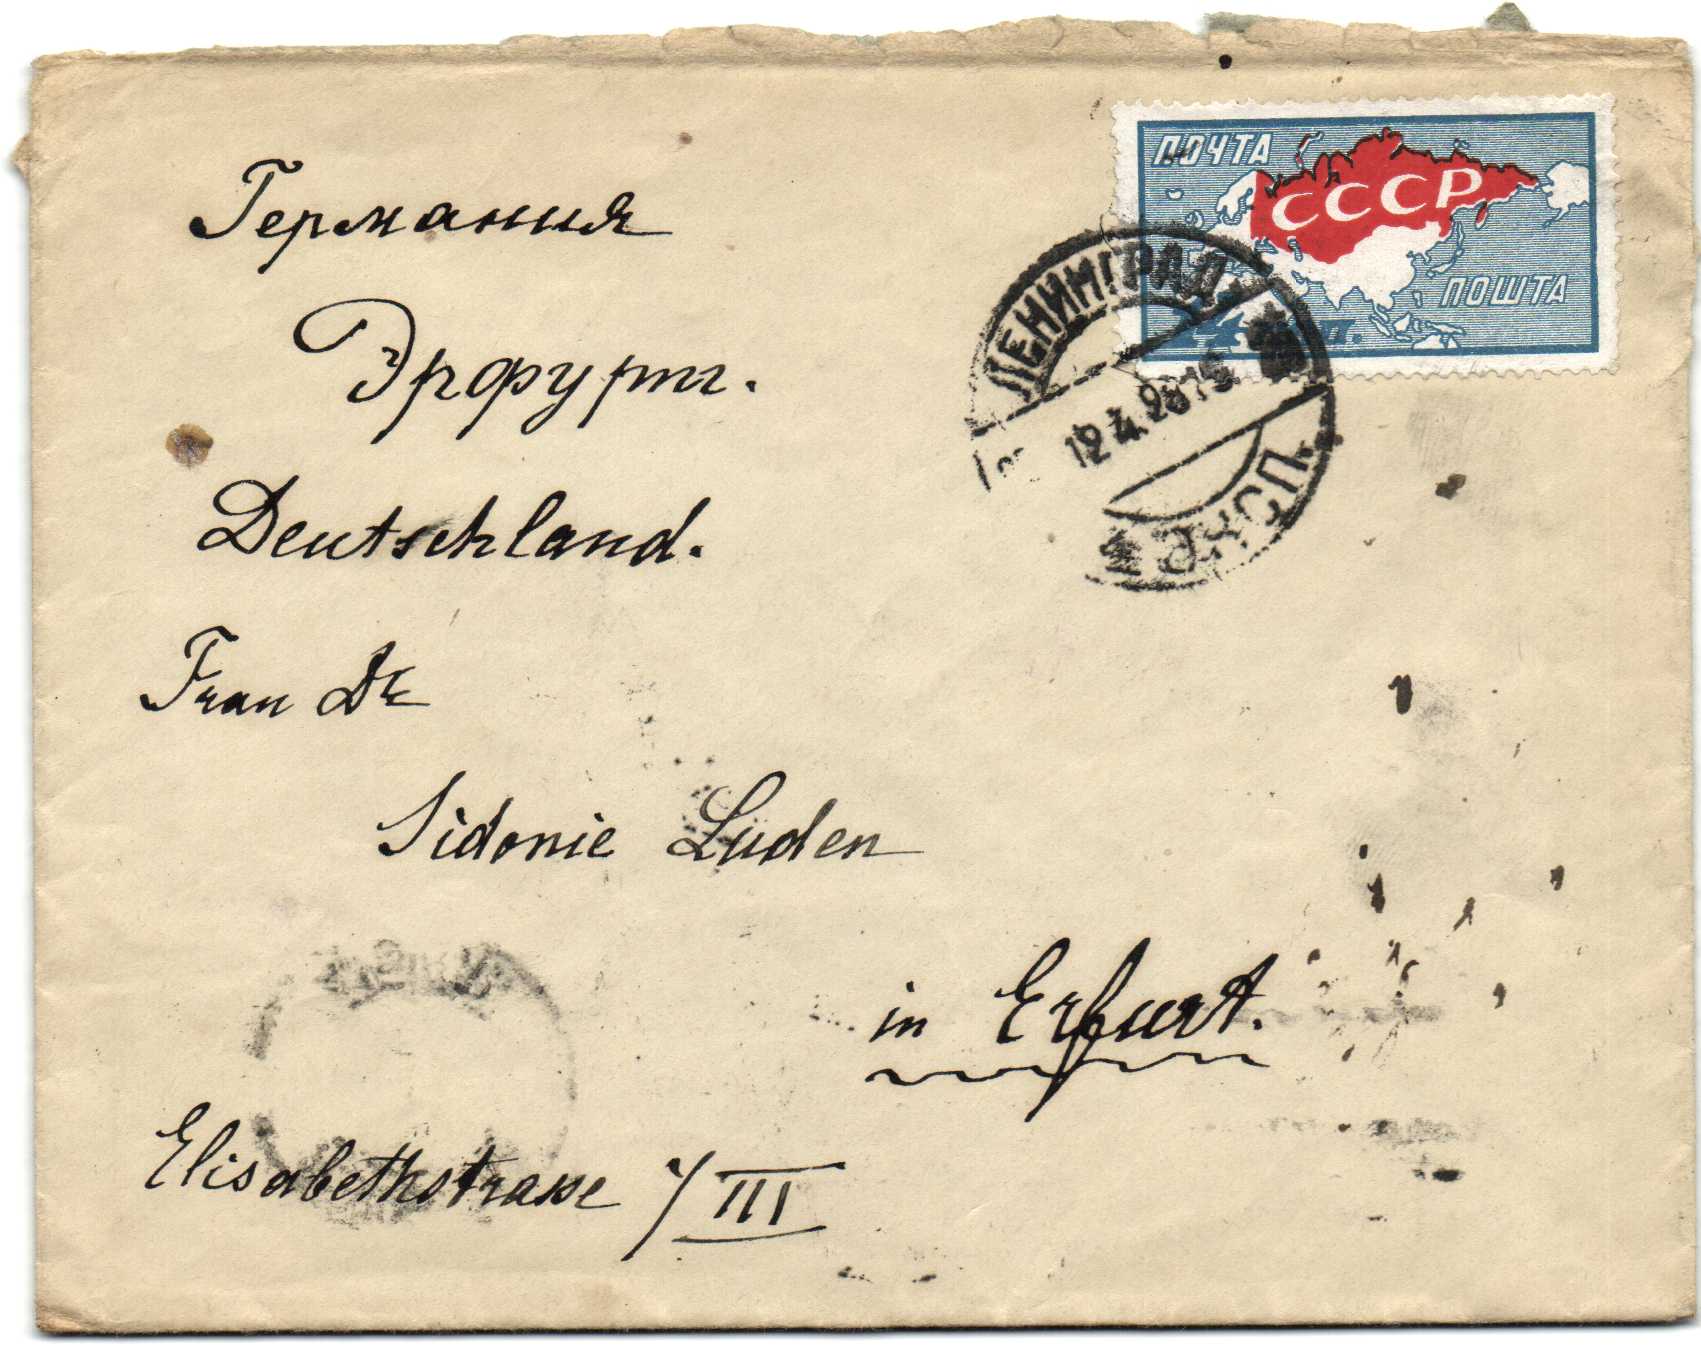 Германия
Эрфурт.
Deutschland.
Frau Dr
Sidonie Luden
in Erfurt.
Elisabethstrasse 7/III
ПОЧТА
СССР
ПОШТА
ЛЕНИНГРАД
12.4.28
ЭКСП.